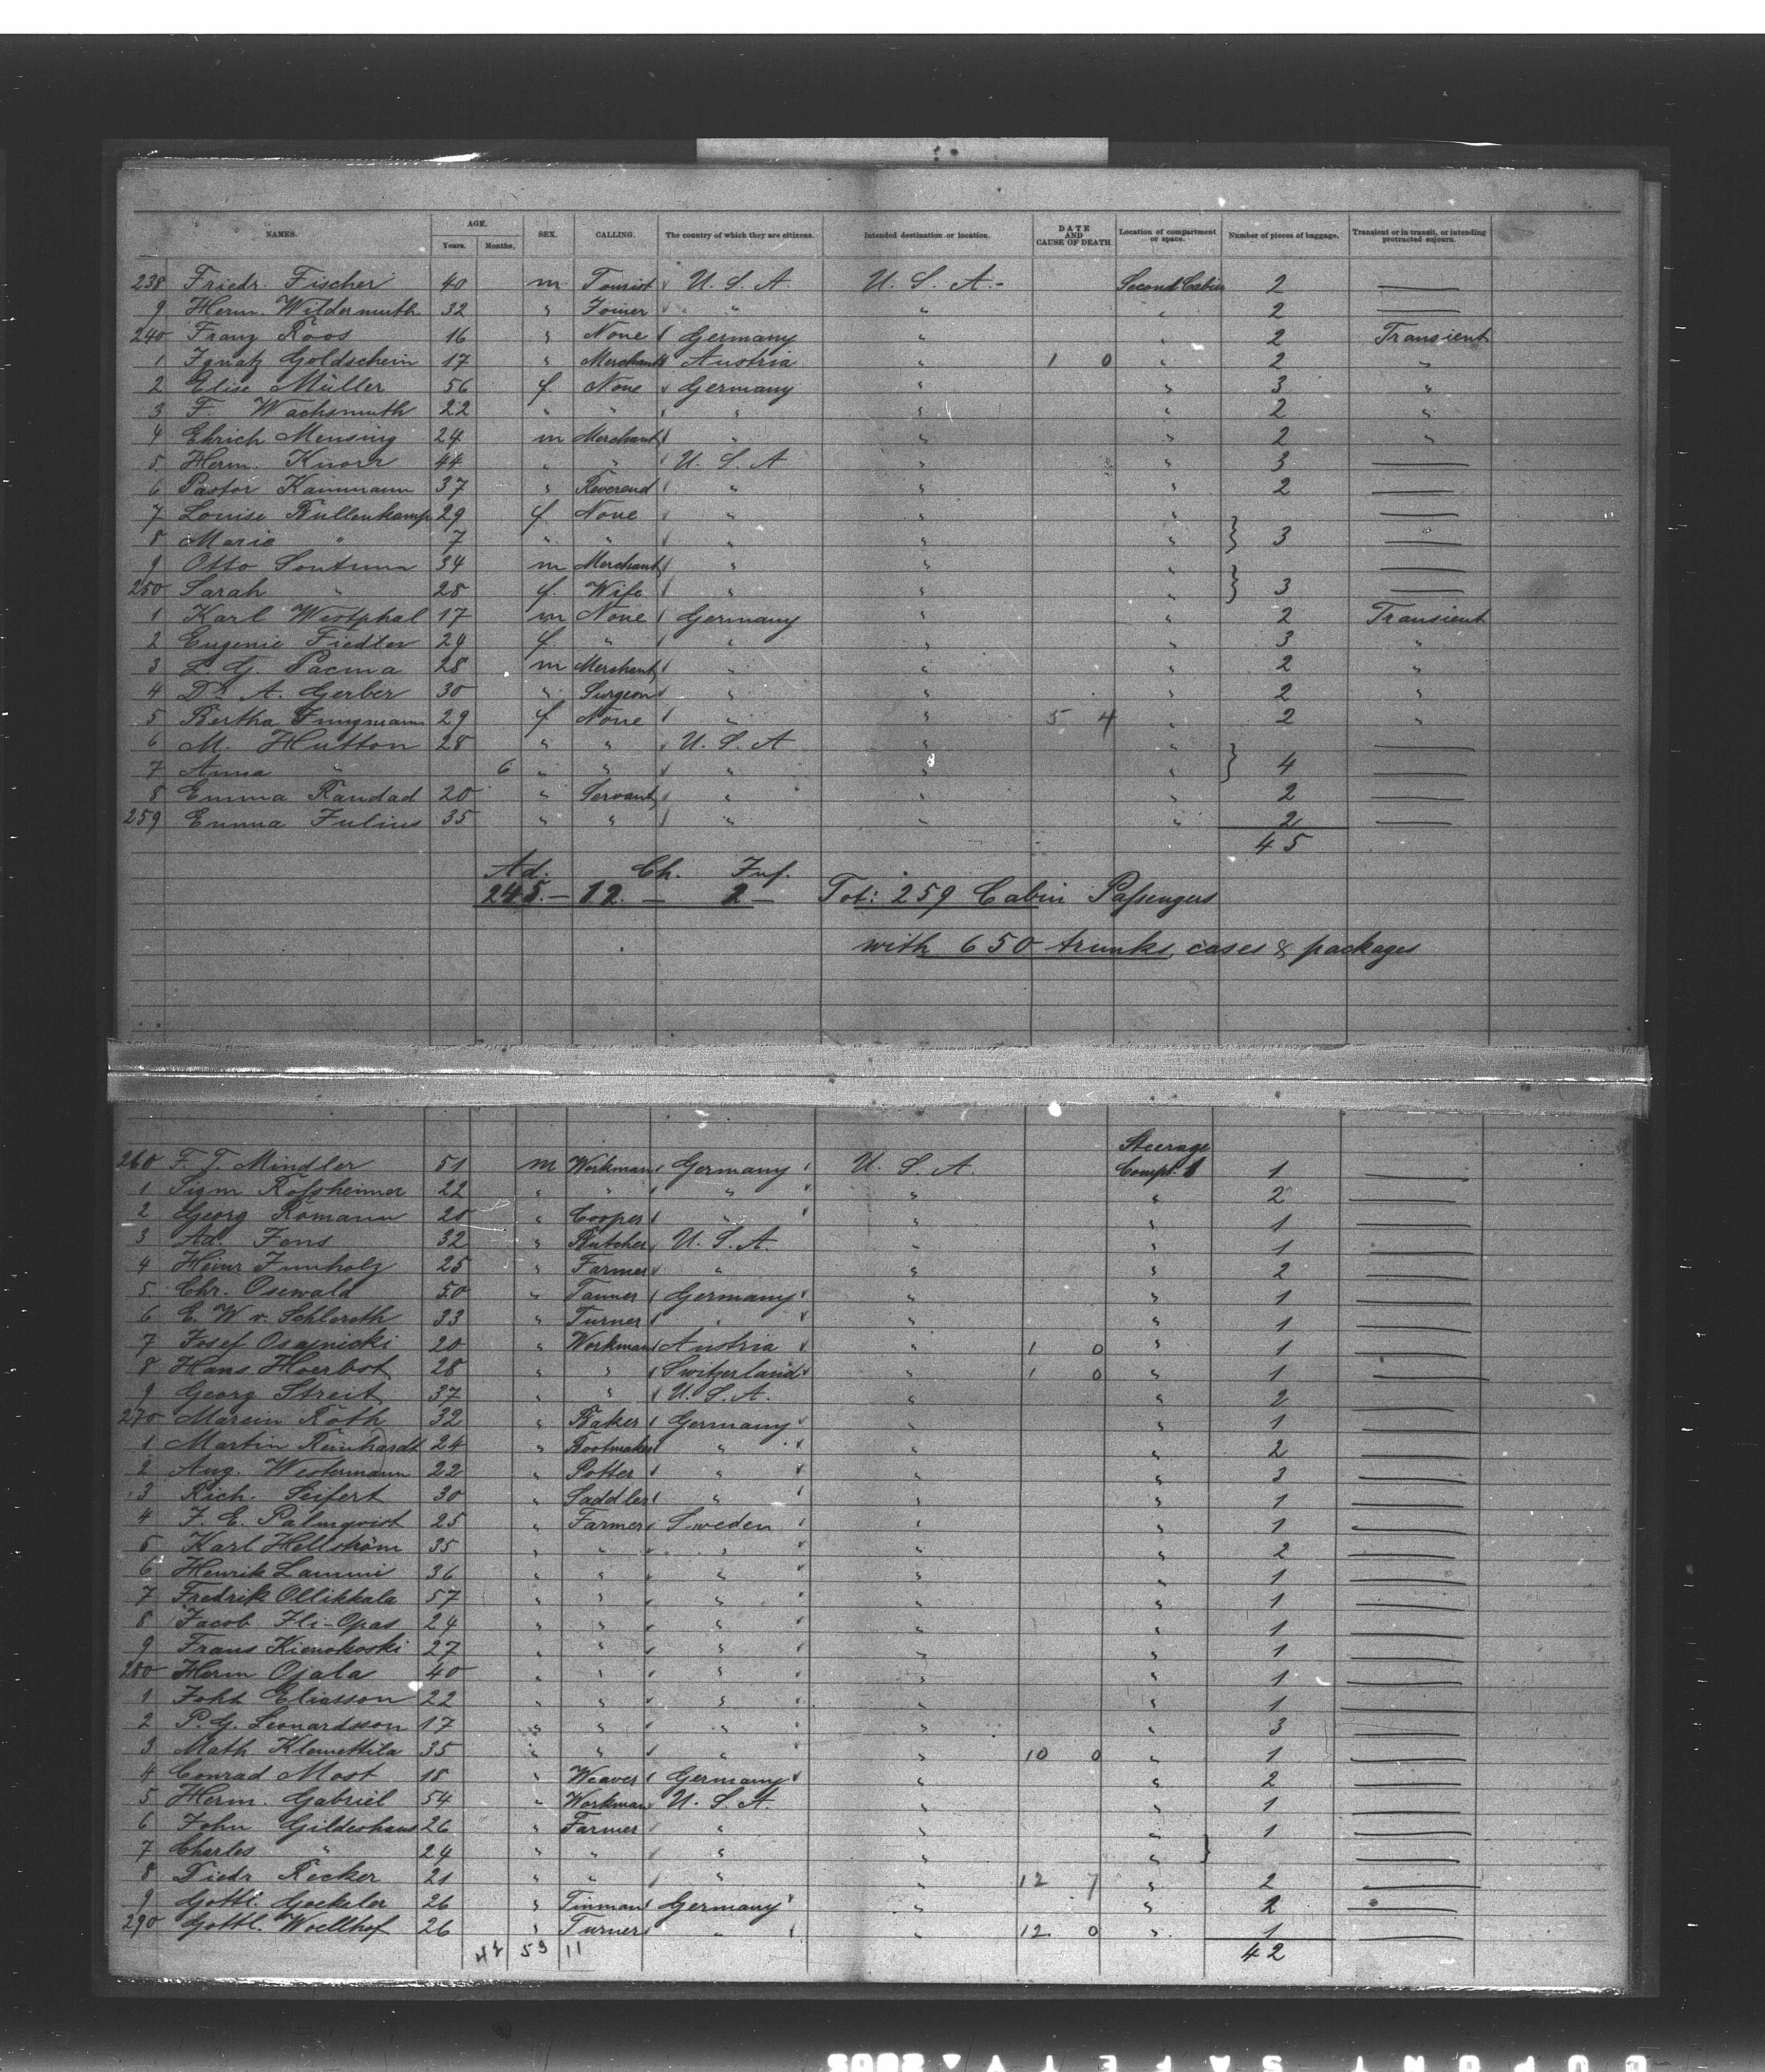 NAMES. AGE. Years. Months. SEX. CALLING. The country of which they are citizens. Intended destination or location. DATE AND CAUSE OF DEATH Location of compartment or space. Number of pieces of baggage. Transient or in transit, or intending protracted sojourn.
238 Friedr. Fischer 40 m Tourist U. S. A. U. S. A. Second Cabin 2 —
9 Herm. Wildermuth 32 " Joiner " " " 2 —
240 Franz Roos 16 " None Germany " " 2 Transient
1 Ignatz Goldschein 17 " Merchant Austria " 1 0 " 2 "
2 Elise Müller 56 f. None Germany " " 3 "
3 F. Wachsmuth 22 " " " " " 2 "
4 Ehrich Mensing 24 m Merchant " " " 2 "
5 Herm. Knorr 44 " " U. S. A " " 3 —
6 Pastor Kammann 37 " Reverend " " " 2 —
7 Louise Bullenkamp 29 f. None " " " —
8 Marie " 7 " " " " " } 3 —
9 Otto Sontum 34 m Merchant " " " —
250 Sarah " 28 f. Wife " " " } 3 —
1 Karl Westphal 17 m None Germany " " 2 Transient
2 Eugenie Fiedler 24 f. " " " " 3 "
3 L. G. Pacina 28 m Merchant " " " 2 "
4 Dr. A. Gerber 30 " Surgeon " " " 2 "
5 Bertha Jungmann 29 f None " " 5 4 " 2 "
6 M. Hutton 28 " " U. S. A " " —
7 Anna " 6 " " " " " } 4 —
8 Emma Randad 20 " Servant " " " 2 —
259 Emma Julius 35 " " " " " 2 —
45
Ad. Ch. Inf.
245. – 12. – 2 – Tot: 259 Cabin Passengers
with 650 trunks, cases & packages
Steerage
260 F. T. Mindler 51 m Workman Germany U. S. A Compt. 1 1 —
1 Sigm Rossheimer 22 " " " " " 2 —
2 Georg Romann 20 " Cooper " " " 1 —
3 Ad. Jens 32 " Butcher U. S. A. " " 1 —
4 Heinr Immholz 25 " Farmer " " " 2 —
5 Chr. Osewald 50 " Tanner Germany " " 1 —
6 E. W. v. Schleroth 33 " Turner " " " 1 —
7 Josef Osajnicki 20 " Workman Austria " 1 0 " 1 —
8 Hans Hoerbst 28 " " Switzerland " 1 0 " 1 —
9 Georg Streit 37 " " U. S. A. " " 2 —
270 Marcin Roth 32 " Baker Germany " " 1 —
1 Martin Reinhardt 24 " Bootmaker " " " 2 —
2 Aug. Westermann 22 " Potter " " " 3 —
3 Rich. Seifert 30 " Saddler " " " 1 —
4 J. E. Palmqvist 25 " Farmer Sweden " " 1 —
5 Karl Hellström 35 " " " " " 2 —
6 Henrik Lammi 36 " " " " " 1 —
7 Fredrik Ollikkala 57 " " " " " 1 —
8 Jacob Ili-Opas 24 " " " " " 1 —
9 Frans Kienokoski 27 " " " " " 1 —
280 Herm Ojala 40 " " " " " 1 —
1 Joht Eliasson 22 " " " " " 1 —
2 P. G. Leonardsson 17 " " " " " 3 —
3 Math Klemettila 35 " " " " 10 0 " 1 —
4 Conrad Most 18 " Weaver Germany " " 2 —
5 Herm. Gabriel 54 " Workman U. S. A. " " 1 —
6 John Gildeohaus 26 " Farmer " " " 1 —
7 Charles " 24 " " " " " } —
8 Diedr Recker 21 " " " " 12 7 " 2 —
9 Gottl. Gockeler 26 " Tinman Germany " " 2 —
290 Gottl. Woellhof 26 " Turner " " 12 0 " 1 —
59 11 42